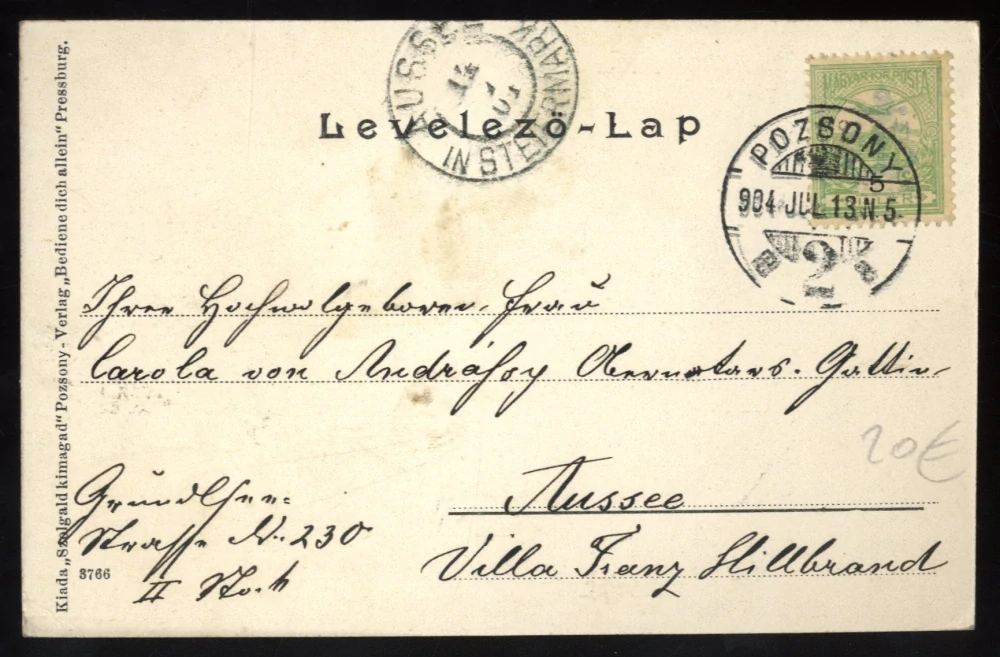 AUSSEE
IN STEIERMARK
Levelező-Lap
MAGYAR KIR. POSTA
POZSONY
904 JUL 13 N 5
2
5
Ihrer Hochwolgeboren Frau
Carola von Andrássy Obernotars-Gattin
Aussee
Villa Franz Hillbrand
Grundlsee-
Strasse N. 230
II Stock
20€
Kiada „Szolgald kimagad“ Pozsony - Verlag „Bediene dich allein“ Pressburg.
3766